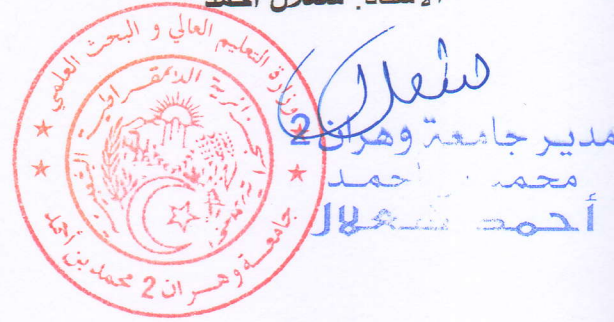 الأستاذ. شعلال أحمد
وزارة التعليم العالي و البحث العلمي
الجمهورية الجزائرية الديمقراطية الشعبية
جامعة وهران 2 محمد بن أحمد
شعلال
مدير جامعة وهران 2
محمد بن أحمد
أحمد شعلال